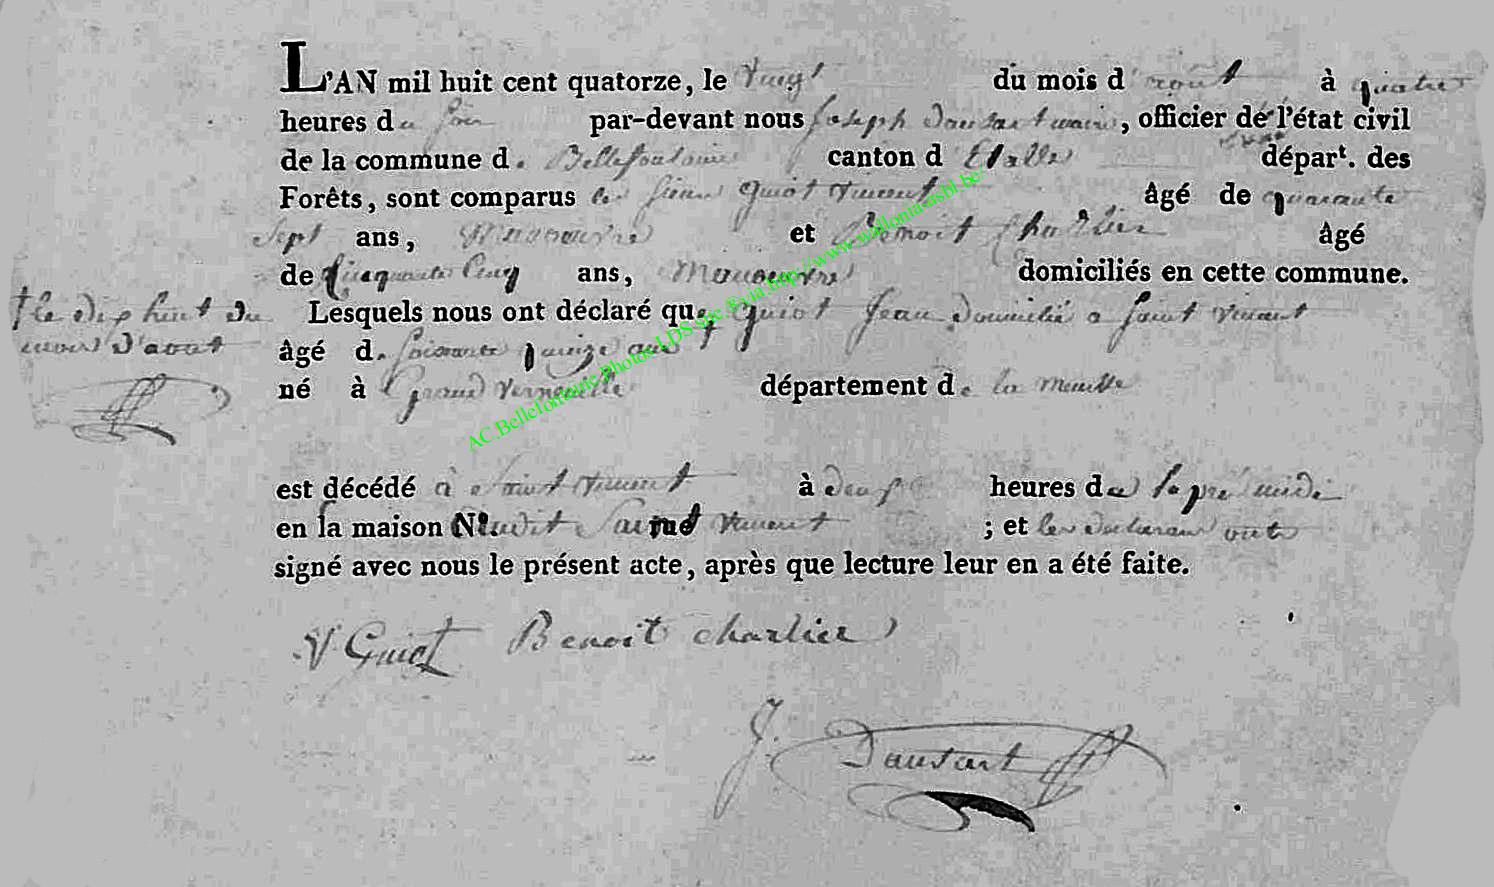 L'AN mil huit cent quatorze, le Vingt du mois d'aout à quatre
heures du soir par-devant nous Joseph Dausart maire, officier de l'état civil
de la commune de Bellefontaine canton d'Etalle départ. des
Forêts, sont comparus les sieurs Guiot Vincent âgé de quarante
Sept ans, Manoeuvre et Benoit Charlier âgé
de Cinquante Cinq ans, Manoeuvre domiciliés en cette commune.
Lesquels nous ont déclaré que Guiot Jean domicilié a Saint Vincent
† le dix huit du
mois d'aout
âgé de soixante quinze ans †
né à Grand Verneuille département de la meuse
est décédé à Saint Vincent à deux heures de l'apres midi
en la maison N° rue dudit Saint Vincent ; et les declarans ont
signé avec nous le présent acte, après que lecture leur en a été faite.
V Guiot Benoit charlier
J. Dausart
AC.Bellefontaine Photos LDS via http://www.wallonia-asbl.be/